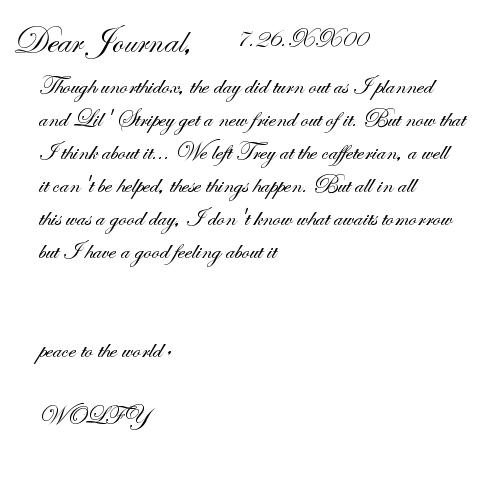 Dear Journal, 7.26.XXX00
Though unorthidox, the day did turn out as I planned
and Lil' Stripey get a new friend out of it. But now that
I think about it... We left Trey at the caffeterian, a well
it can't be helped, these things happen. But all in all
this was a good day, I don't know what awaits tomorrow
but I have a good feeling about it
peace to the world.
WOLFY